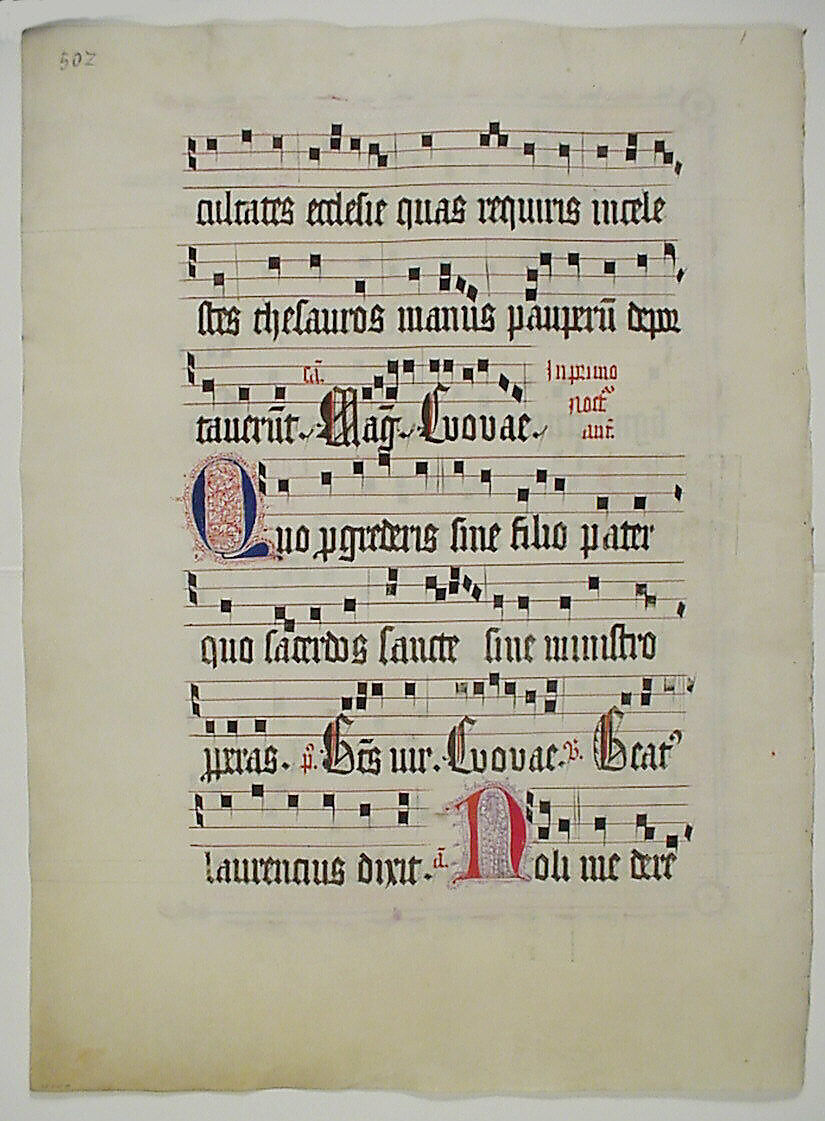 502
cultates ecclesie quas requiris incele
stes thesauros manus pauperū depor
tauerūt. cā. Mag̅. Evovae. In primo
noct̉
an̄t.
Quo ꝓgrederis sine filio pater
quo sacerdos sancte sine ministro
ꝓꝑeras. p̉. Bt̄s uir. Evovae. v̉. Beat᾿
laurencius dixit. ā. Noli me dere